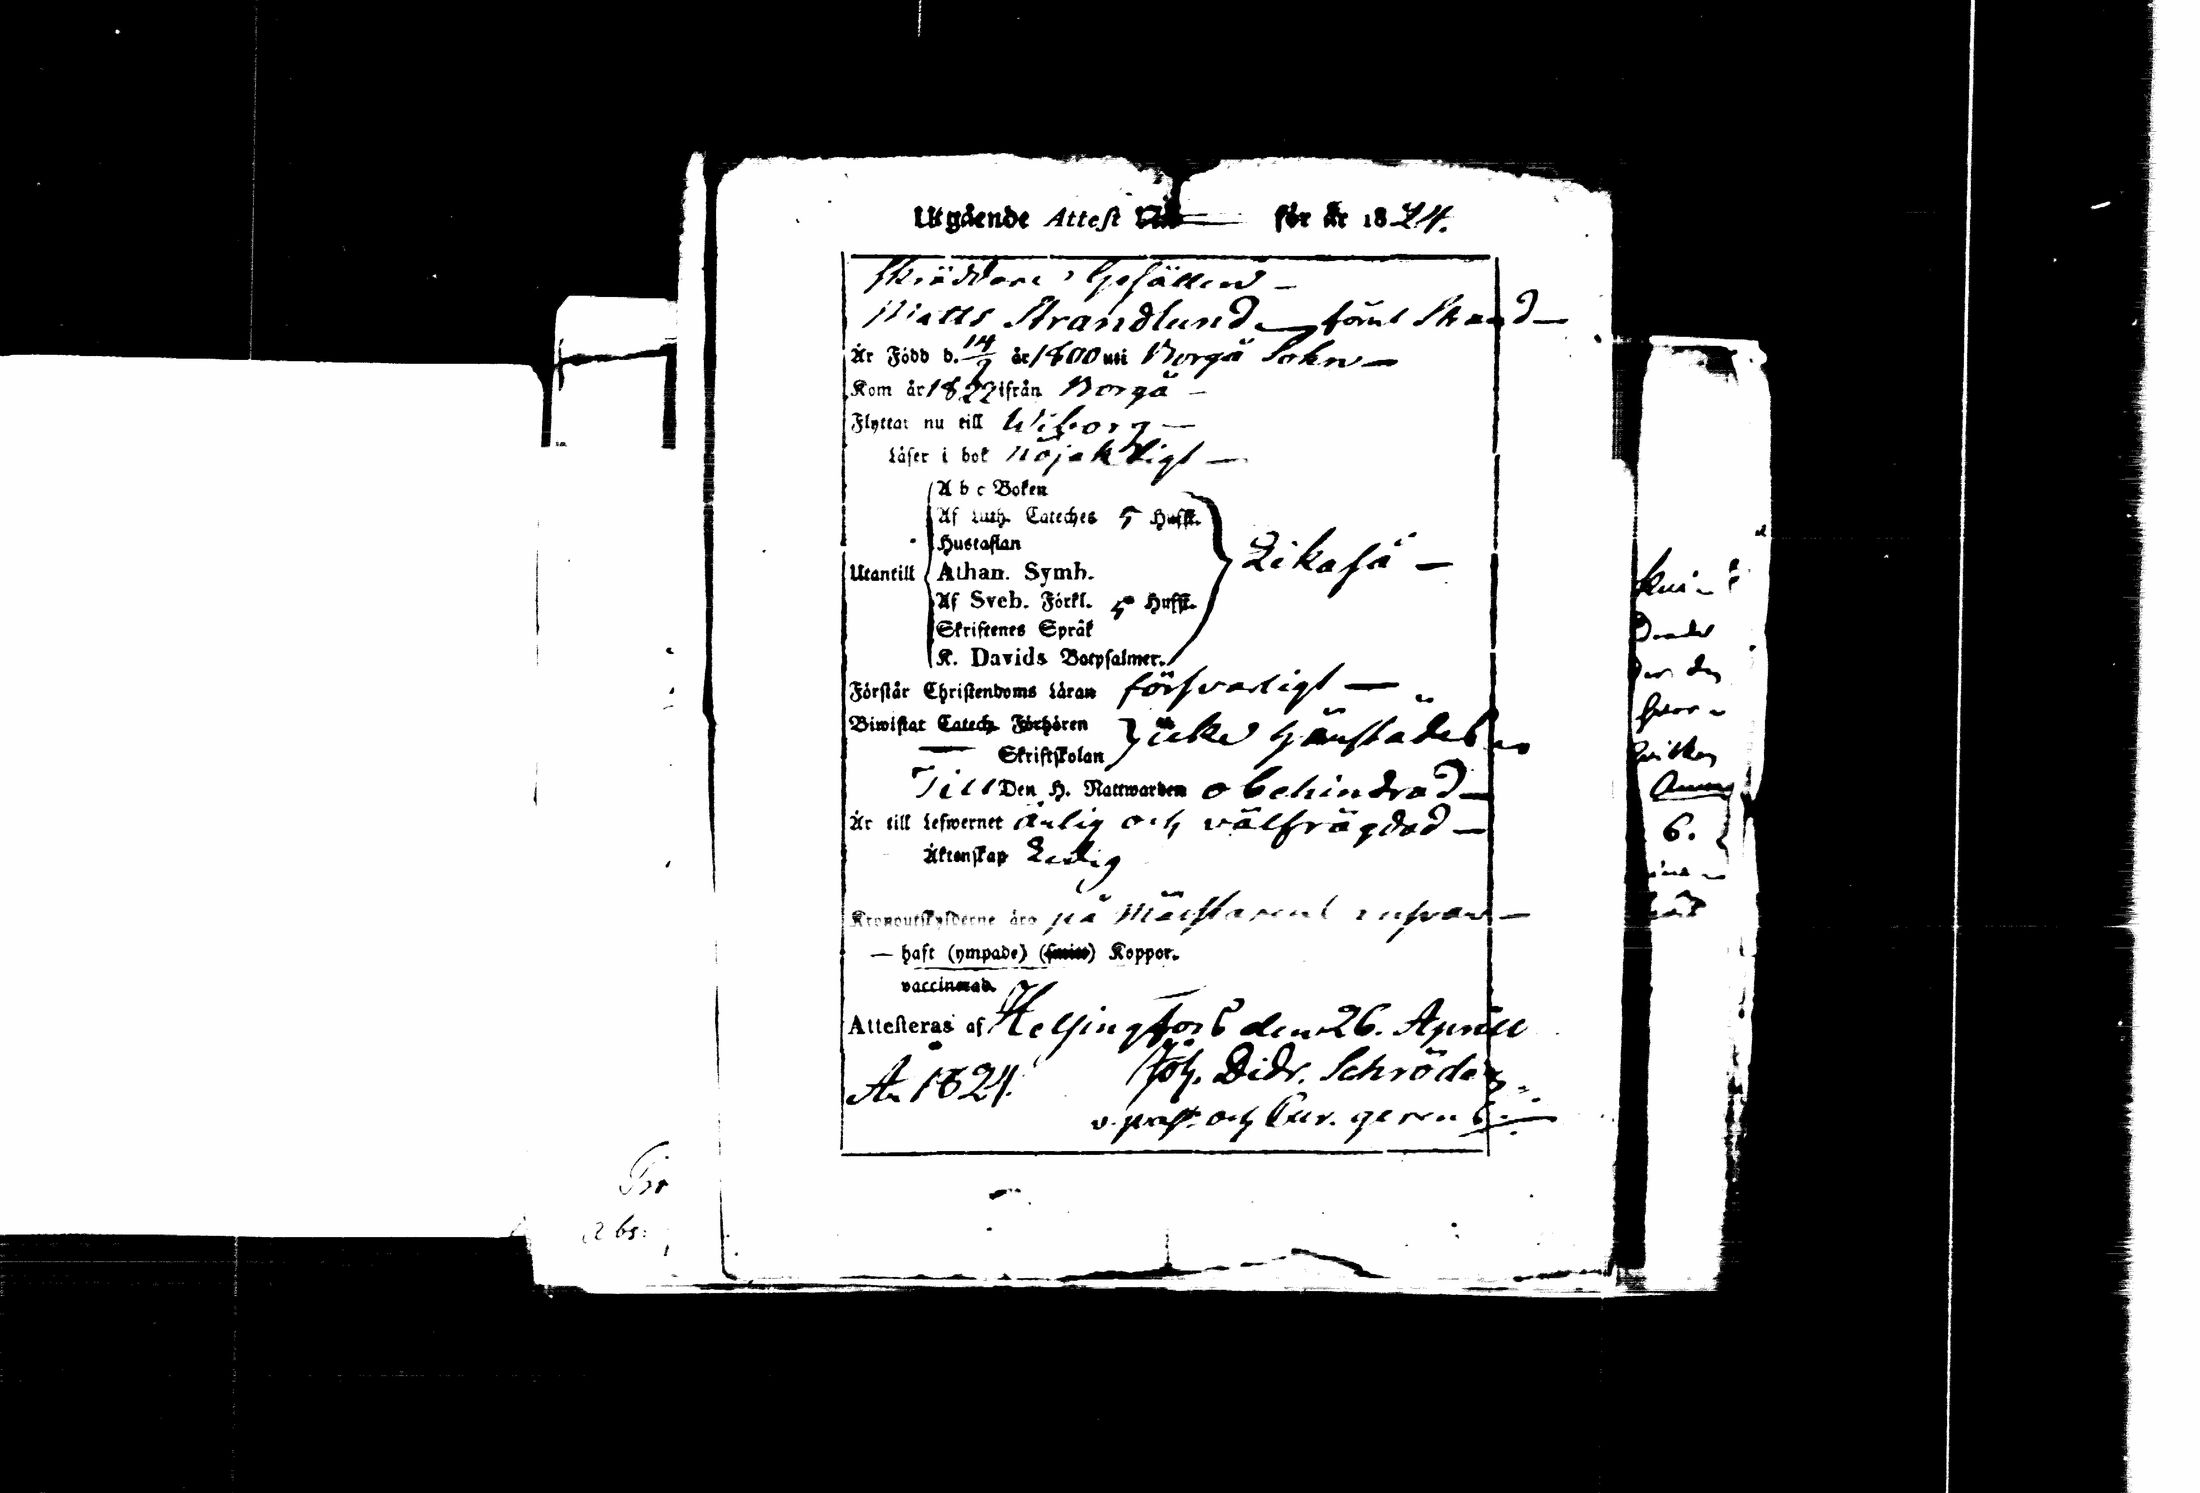 Utgående Attest för år 1824.
Skräddare Gesällen
Matts Strandlund
Är Född d. 14/9 år 1800 uti Borgå Sokn
Kom år 1822 ifrån Borgå
Flyttar nu till Wiborg
Läser i bok nöjaktligt
A b c Boken
Af Luth. Cateches 5 Hufst.
Hustaflan
Utantill Athan. Symb. Likaså
Af Sveb. Förkl. 5 Hufst.
Skriftenes Språk
K. Davids Botpsalmer.
Förstår Christendoms Läran försvarligt
Biwistat Catech. Förhören icke härstädes
Skriftskolan
Till Den H. Nattwarden obehindrad
Är till Lefwernet ärlig och välfrägdad
Äktenskap Ledig
Kronoutskylderne äro på Mästarens ansvar
haft (ympade) Koppor.
vaccinerad.
Attesteras af Helsingfors den 26. April
Ar 1824. Joh. Didr. Schröder
v. past. och Cur. gerens
6.